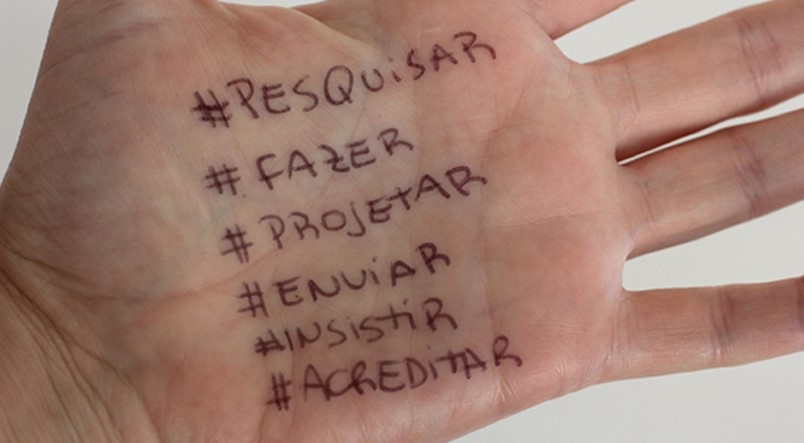 #PESQUiSAR
#FAZER
#PROJETAR
#ENViAR
#INSiStiR
#ACREDitAR